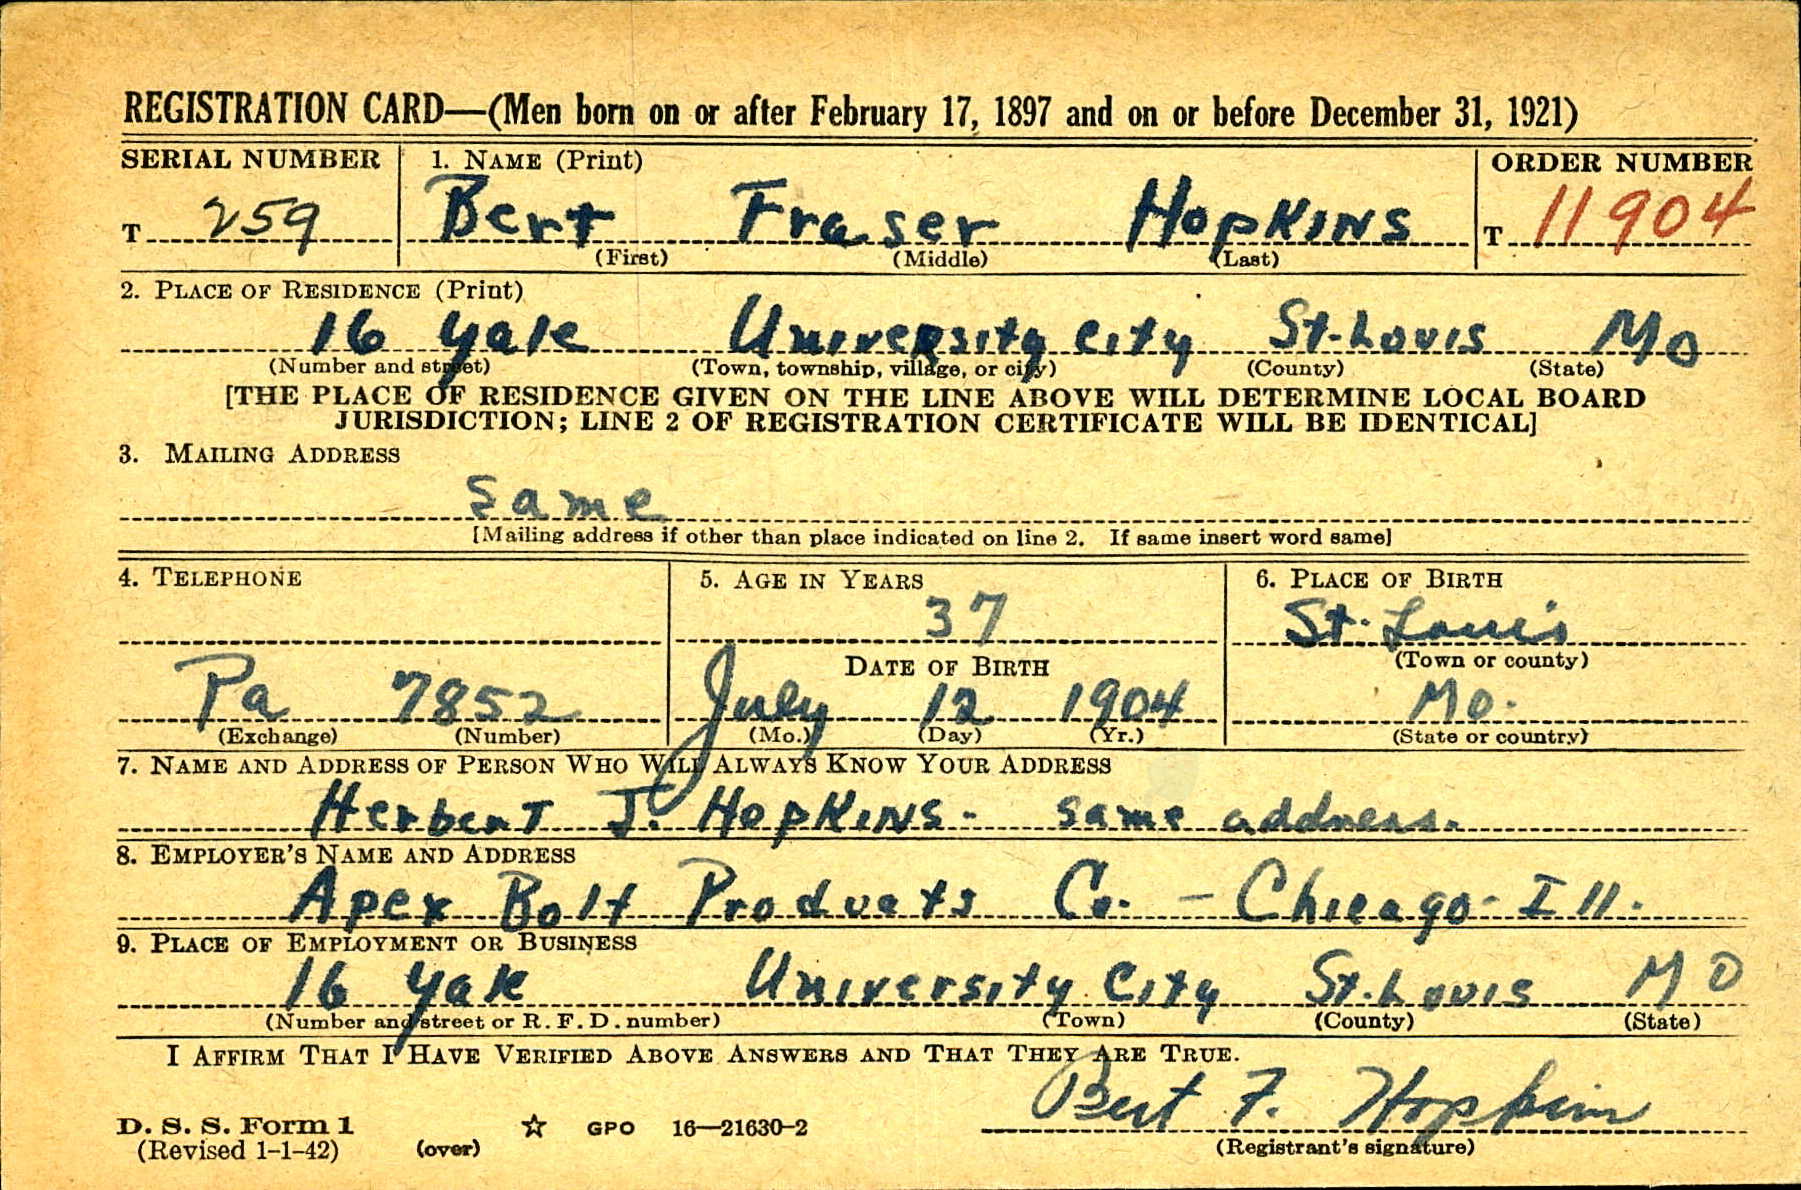 REGISTRATION CARD—(Men born on or after February 17, 1897 and on or before December 31, 1921)
SERIAL NUMBER 1. NAME (Print) ORDER NUMBER
T 259 Bert Fraser Hopkins T 11904
(First) (Middle) (Last)
2. PLACE OF RESIDENCE (Print)
16 Yale University City St. Louis Mo
(Number and street) (Town, township, village, or city) (County) (State)
[THE PLACE OF RESIDENCE GIVEN ON THE LINE ABOVE WILL DETERMINE LOCAL BOARD
JURISDICTION; LINE 2 OF REGISTRATION CERTIFICATE WILL BE IDENTICAL]
3. MAILING ADDRESS
Same
[Mailing address if other than place indicated on line 2. If same insert word same]
4. TELEPHONE 5. AGE IN YEARS 6. PLACE OF BIRTH
37 St. Louis
DATE OF BIRTH (Town or county)
Pa 7852 July 12 1904 Mo.
(Exchange) (Number) (Mo.) (Day) (Yr.) (State or country)
7. NAME AND ADDRESS OF PERSON WHO WILL ALWAYS KNOW YOUR ADDRESS
Herbert J. Hopkins - same address.
8. EMPLOYER'S NAME AND ADDRESS
Apex Bolt Products Co. - Chicago - Ill.
9. PLACE OF EMPLOYMENT OR BUSINESS
16 Yale University City St. Louis MO
(Number and street or R. F. D. number) (Town) (County) (State)
I AFFIRM THAT I HAVE VERIFIED ABOVE ANSWERS AND THAT THEY ARE TRUE.
Bert F. Hopkins
D. S. S. Form 1 ☆ GPO 16—21630-2
(Revised 1-1-42) (over) (Registrant's signature)